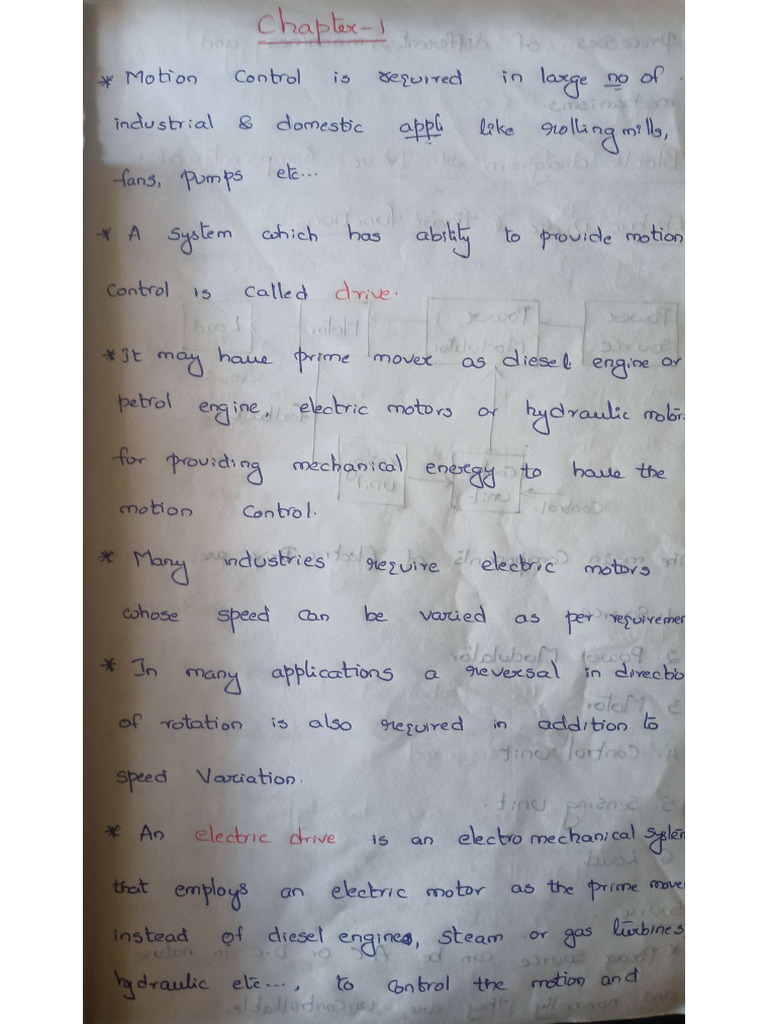 Chapter-1
* Motion Control is required in large no of
industrial & domestic appli like rolling mills,
fans, pumps etc...
* A system which has ability to provide motion
control is called drive.
* It may have prime mover as diesel engine or
petrol engine, electric motors or hydraulic motor
for providing mechanical energy to have the
motion control.
* Many industries require electric motors
whose speed can be varied as per requiremen
* In many applications a reversal in directio
of rotation is also required in addition to
speed Variation.
* An electric drive is an electromechanical system
that employs an electric motor as the prime move
instead of diesel engines, steam or gas turbines
hydraulic etc..., to control the motion and